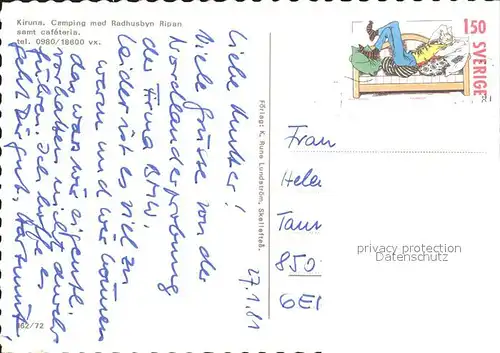 Kiruna. Camping med Radhusbyn Ripan
samt cafeteria.
tel. 0980/18600 vx.
Liebe Mutter!
Viele Grüsse von der
Nordlanderprobung
der Firma BMW.
Leider ist es viel zu
warm und wir können
das was wir eigentl.
vorhaben nicht durch-
führen. Ich hoffe es
geht Dir gut,
27.1.81
162/72
Förlag: K. Rune Lundström, Skellefteå.
150
SVERIGE
Frau
Hele
Taun
850
GEI
privacy protection
Datenschutz